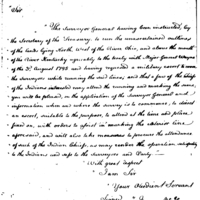 Sir
The Surveyor General having been instructed, by
the Secretary of the Treasury, to run the unascertained outlines
of the lands lying North West of the River Ohio, and above the mouth
of the River Kentucky agreeably to the treaty with Major General Wayne
of the 3d August 1795 and having requested a military escort to cover
the Surveyors while running the said lines; and that a few of the Chiefs
of the Indians interested may attend the running and marking the same,
you will be pleased, on the application of the Surveyor General and
information when and where the survey is to commence, to detail
an escort, suitable to the purpose, to attend at the time and place
fixed on, with orders to assist in marking the exterior line
aforesaid, and will also take measures to procure the attendance
of such of the Indian Chiefs, as may render the operation
to the Indians and safe to the Surveyors and Party
With great respect
I am Sir
Your Obedient Servant